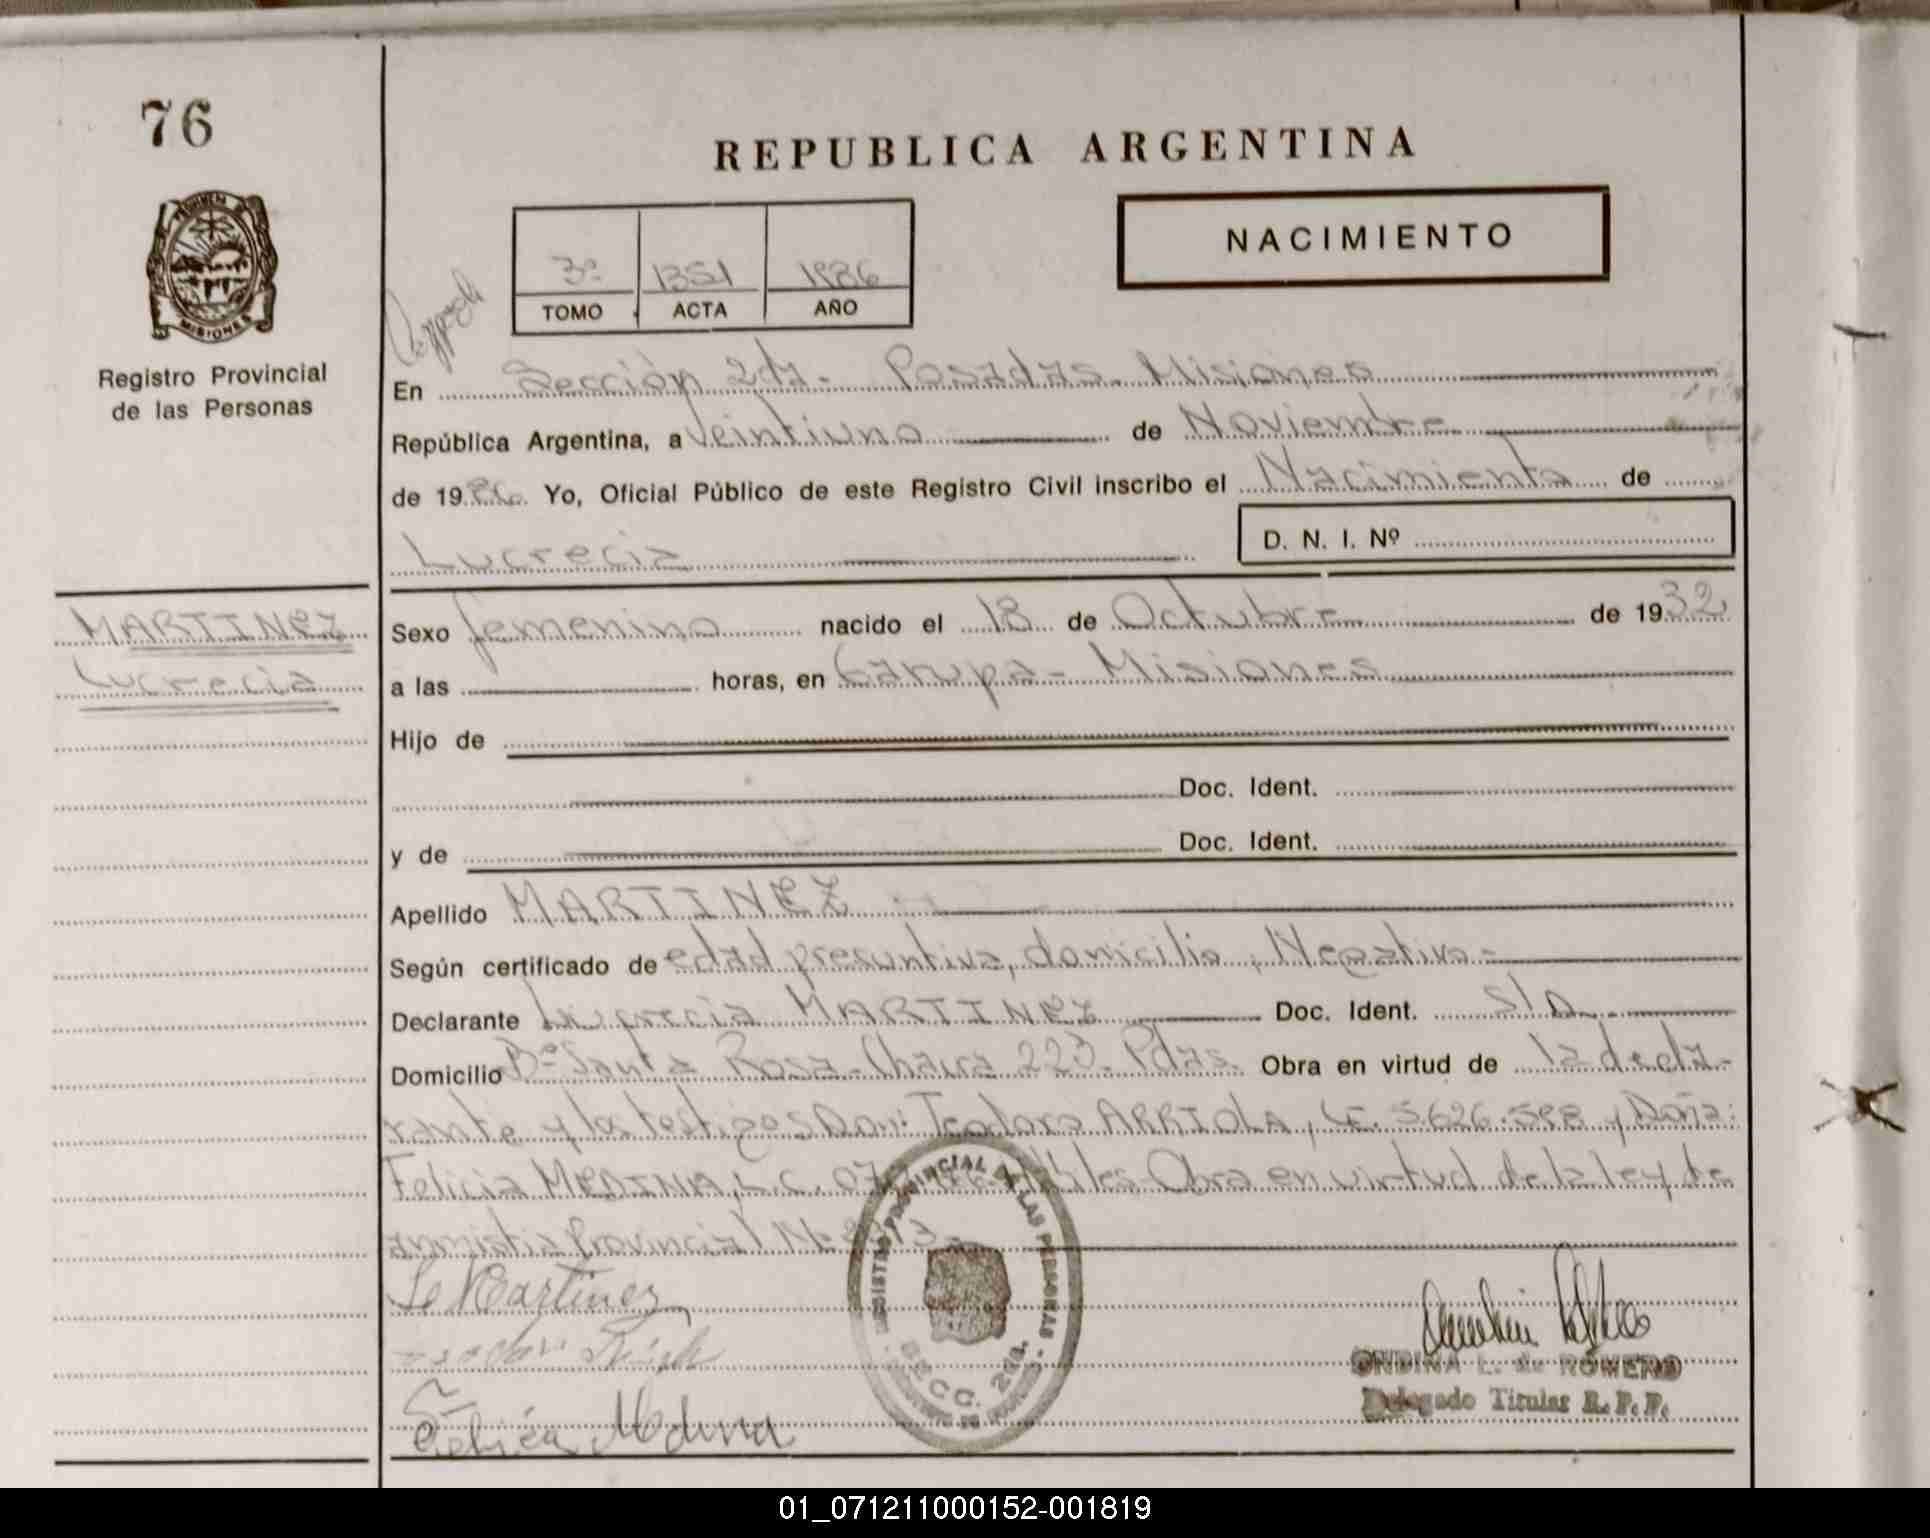 76
REPUBLICA ARGENTINA
NACIMIENTO
3º 1351 1986
TOMO ACTA AÑO
PROVINCIA
MISIONES
Registro Provincial
de las Personas
En Sección 2da. Posadas. Misiones
República Argentina, a Veintiuno de Noviembre
de 1986. Yo, Oficial Público de este Registro Civil inscribo el Nacimiento de
Lucrecia D. N. I. Nº
MARTINEZ
Lucrecia
Sexo femenino nacido el 18 de Octubre de 1932
a las horas, en Garupa - Misiones
Hijo de
Doc. Ident.
y de Doc. Ident.
Apellido MARTINEZ
Según certificado de edad presuntiva, domicilio, Negativo -
Declarante Lucrecia MARTINEZ Doc. Ident. S/D
Domicilio Bº Santa Rosa - Chacra 223. Pdas. Obra en virtud de la decla-
rante y los testigos Don: Teodoro ARRIOLA, LE. 5.626.598 y Doña:
Felicia MEDINA, L.C. Obra en virtud de la ley de
amnistia Provincial Nº
L Martinez
Medina
REGISTRO PROVINCIAL DE LAS PERSONAS
SECC. 2da.
ONDINA L. de ROMERO
Delegado Titular R. P. P.
01_071211000152-001819